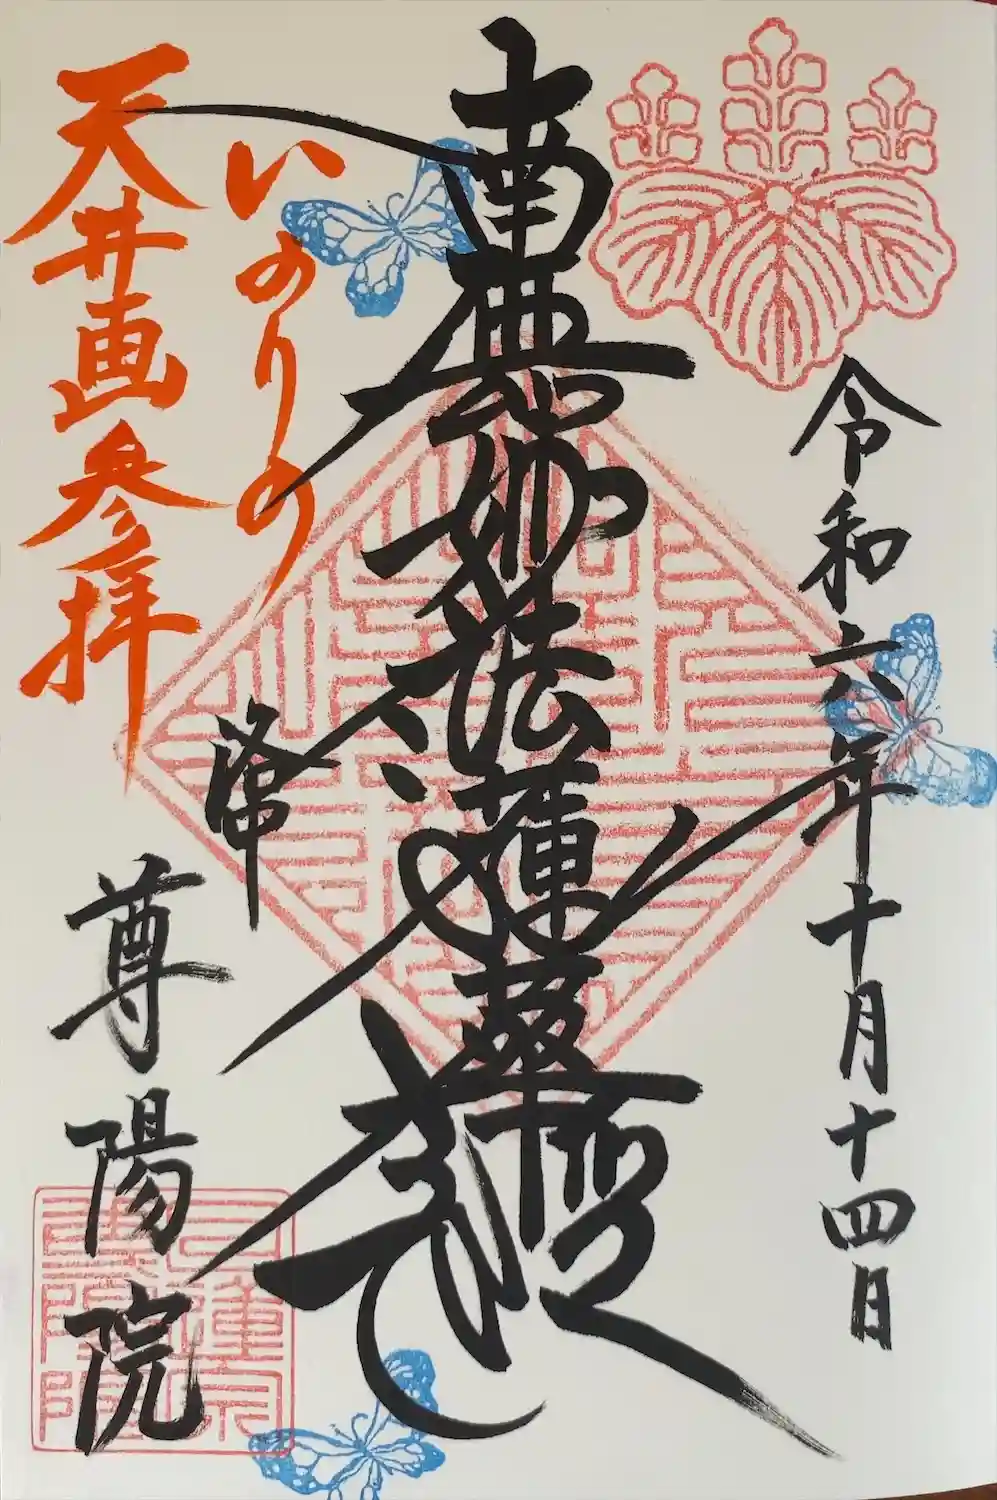 令和六年十月十四日
南無妙法蓮華経
いのりの
天井画参拝
尊陽院